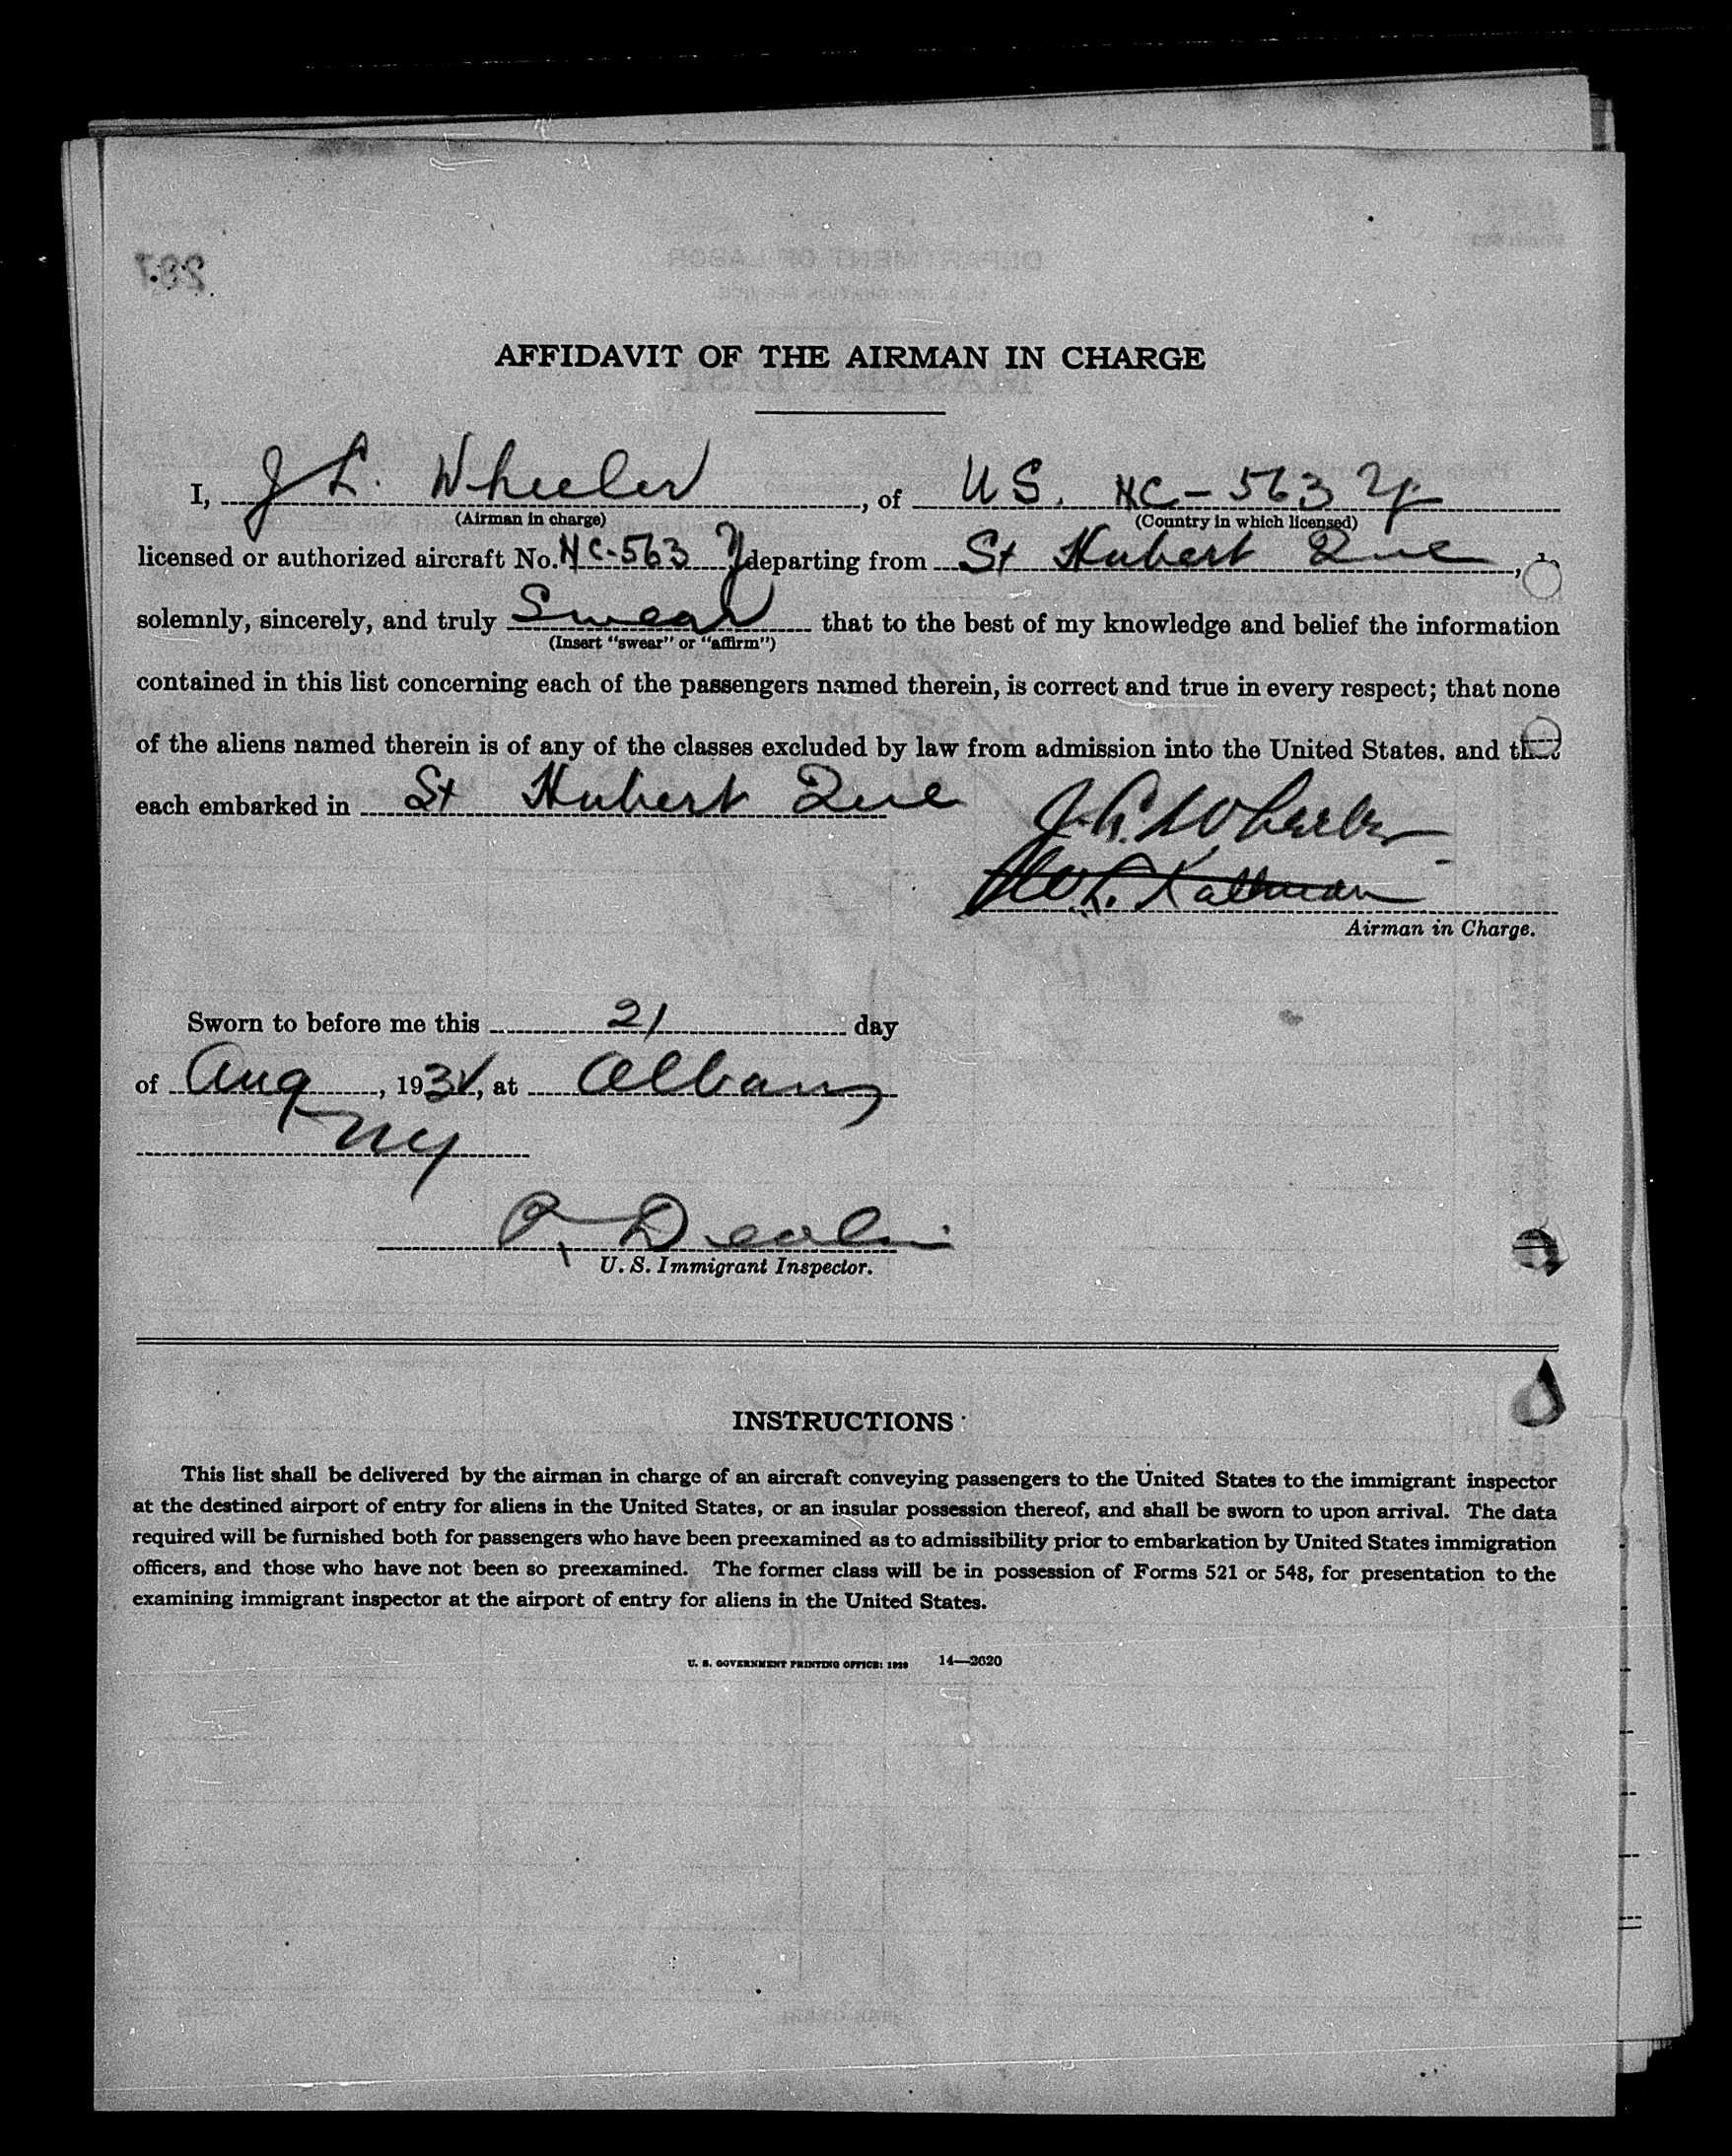 AFFIDAVIT OF THE AIRMAN IN CHARGE
I, J L. Wheeler, of U S. NC-563 Y
(Airman in charge) (Country in which licensed)
licensed or authorized aircraft No. NC-563 Y departing from St Hubert Que,
solemnly, sincerely, and truly Swear that to the best of my knowledge and belief the information
(Insert "swear" or "affirm")
contained in this list concerning each of the passengers named therein, is correct and true in every respect; that none
of the aliens named therein is of any of the classes excluded by law from admission into the United States, and that
each embarked in St Hubert Que
J. L. Wheeler
Airman in Charge.
Sworn to before me this 21 day
of Aug, 193, at Albany
NY
U. S. Immigrant Inspector.
INSTRUCTIONS
This list shall be delivered by the airman in charge of an aircraft conveying passengers to the United States to the immigrant inspector
at the destined airport of entry for aliens in the United States, or an insular possession thereof, and shall be sworn to upon arrival. The data
required will be furnished both for passengers who have been preexamined as to admissibility prior to embarkation by United States immigration
officers, and those who have not been so preexamined. The former class will be in possession of Forms 521 or 548, for presentation to the
examining immigrant inspector at the airport of entry for aliens in the United States.
U. S. GOVERNMENT PRINTING OFFICE: 1929 14—2620